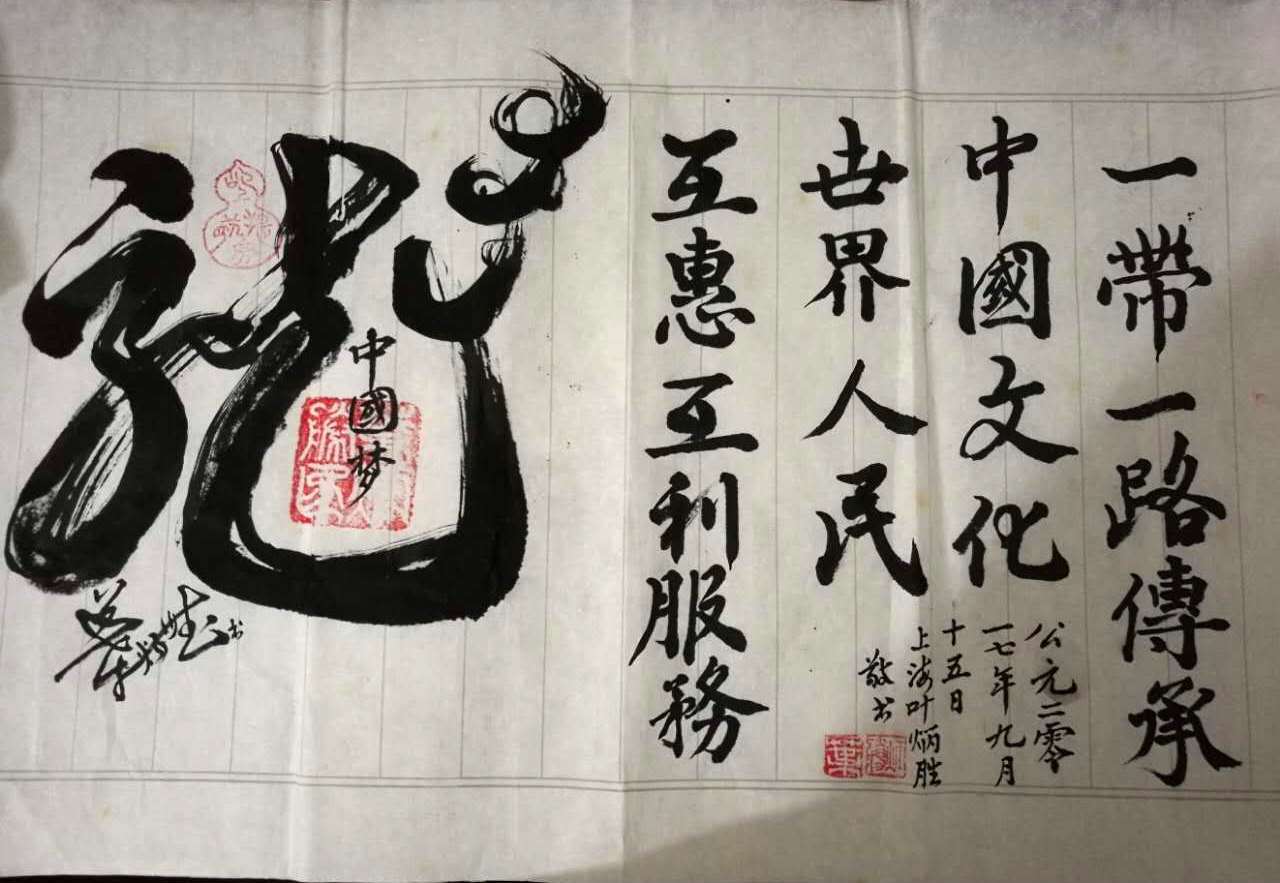 一帶一路傳承
中國文化
世界人民
互惠互利服務
公元二零
一七年九月
十五日
上海叶炳胜
敬书
龙
中國梦